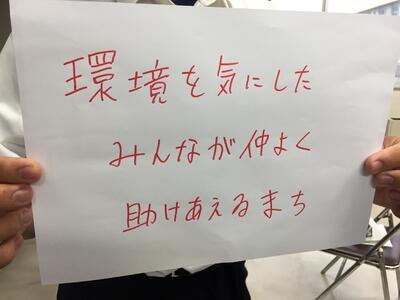 環境を気にした
みんなが仲よく
助けあえるまち